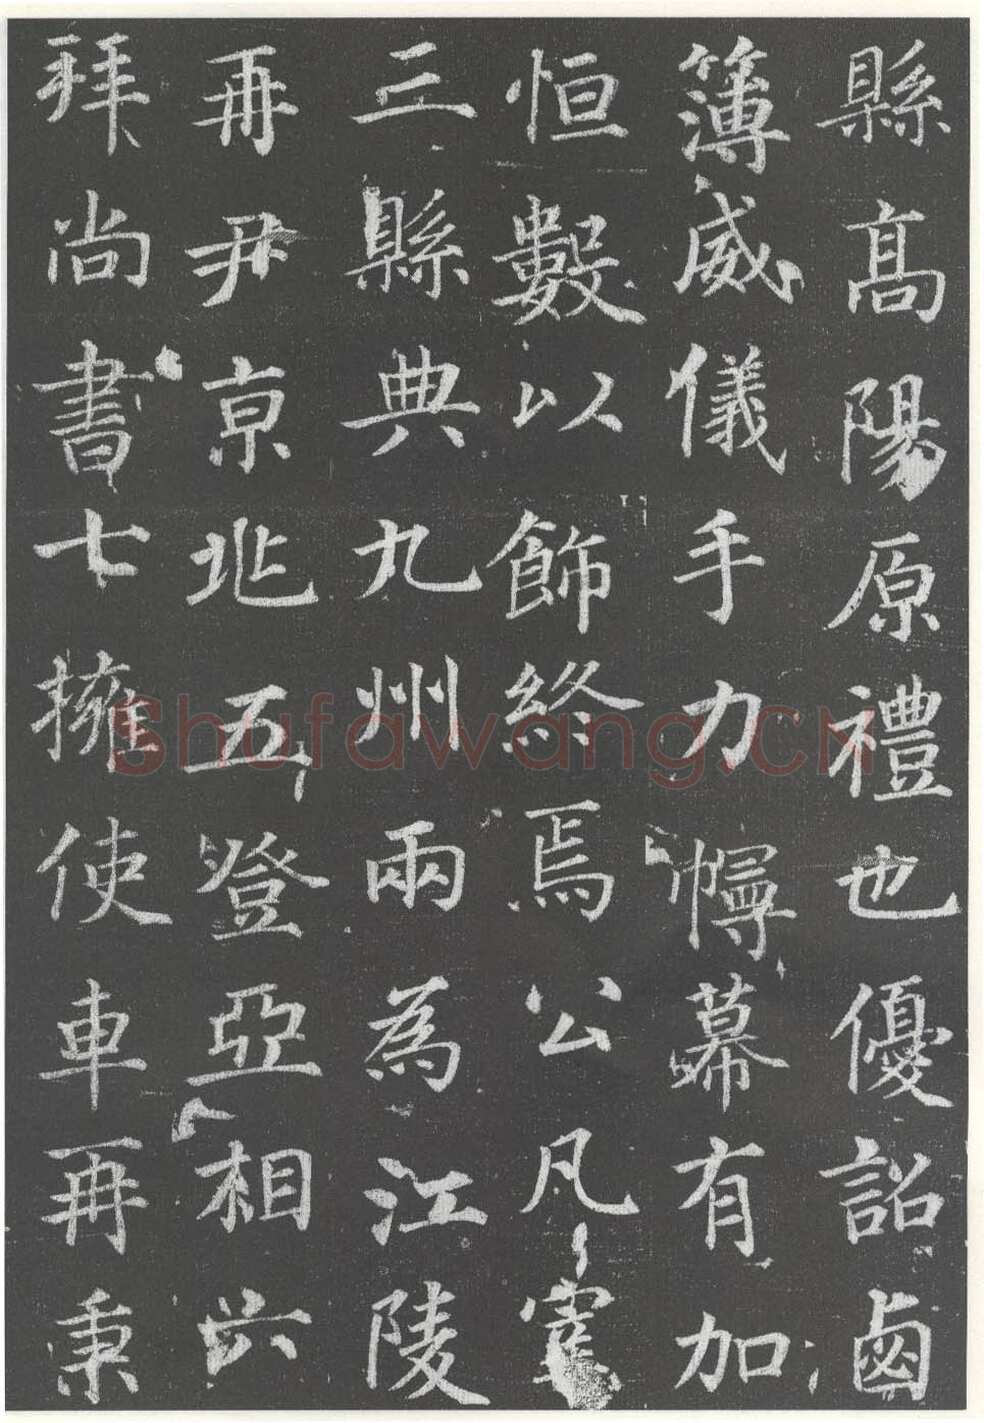 縣高陽原禮也優詔鹵
簿威儀手力幰幕有加
恒數以飾終焉公凡宰
三縣典九州兩為江陵
再尹京兆五登亞相六
拜尚書七擁使車再秉
Shufawang.CN